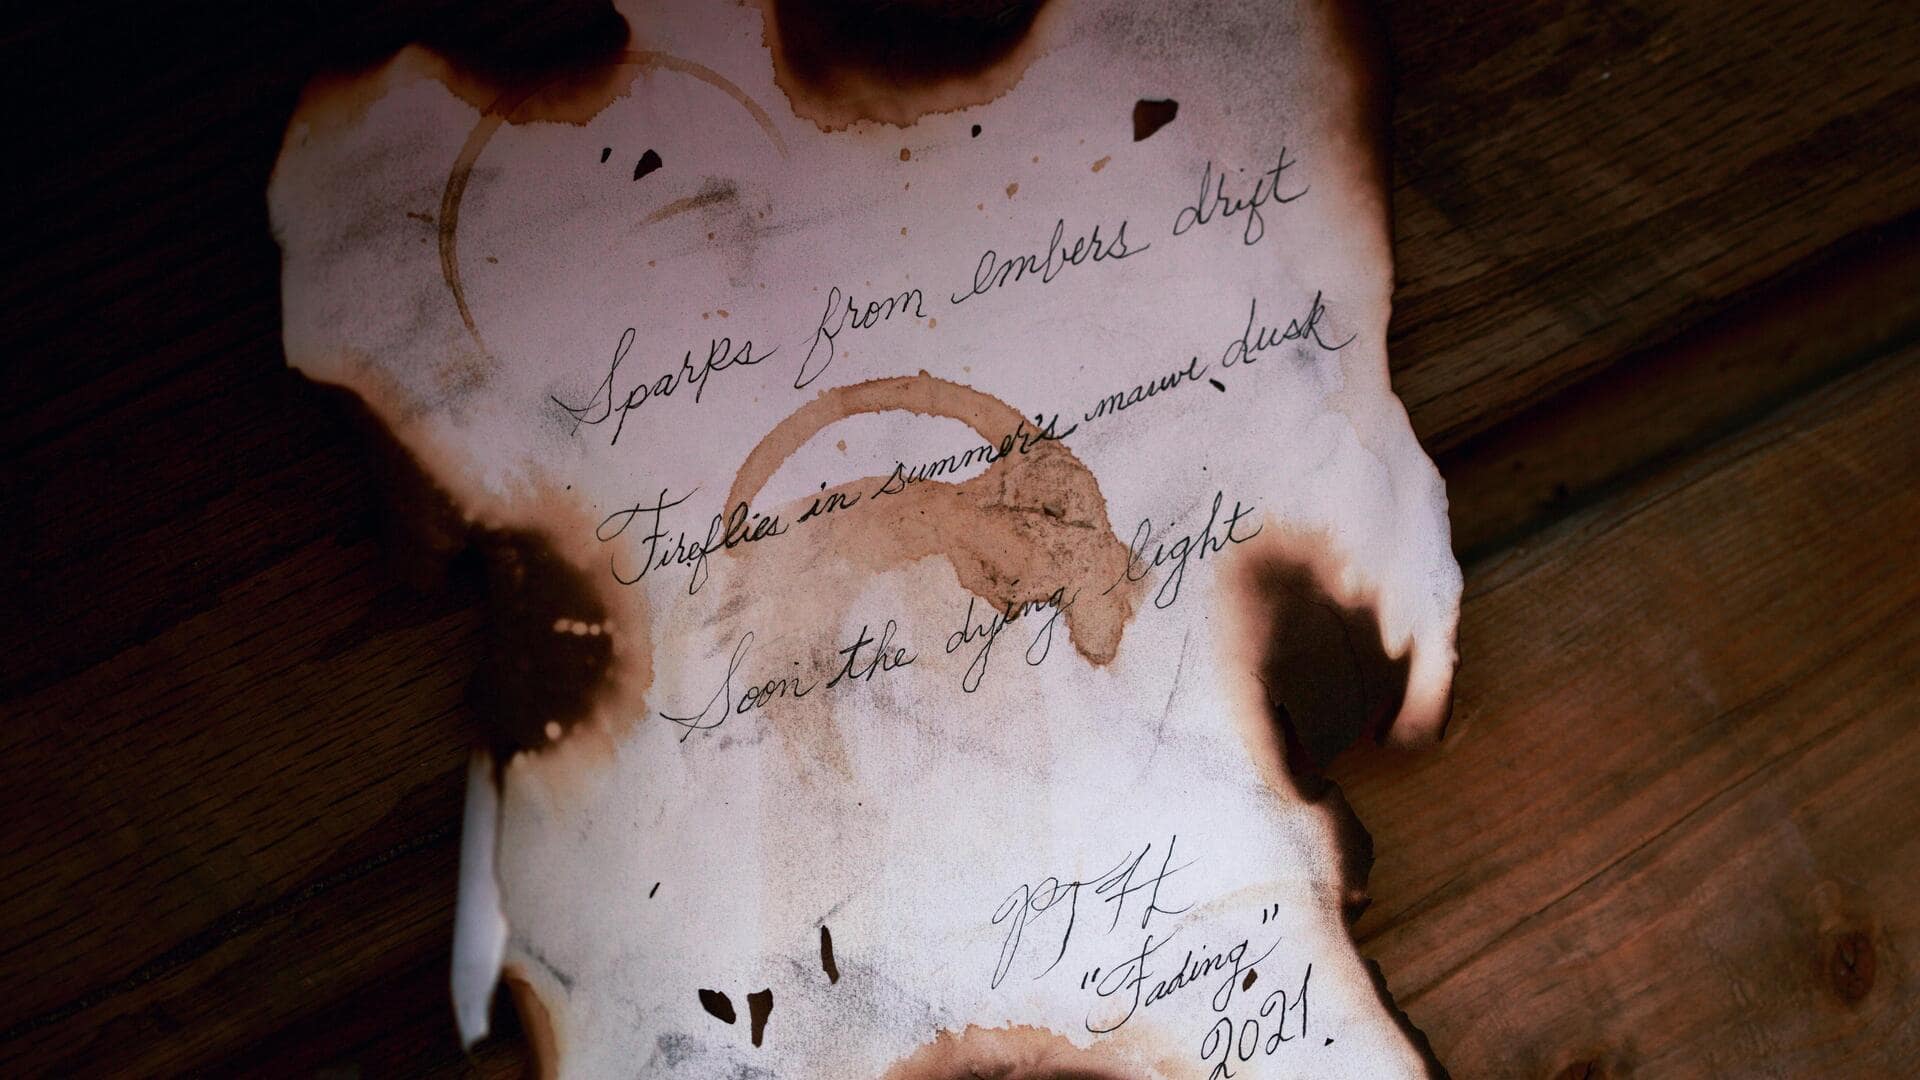 Sparks from embers drift
Fireflies in summer's mauve dusk
Soon the dying light
PJH
"Fading"
2021.